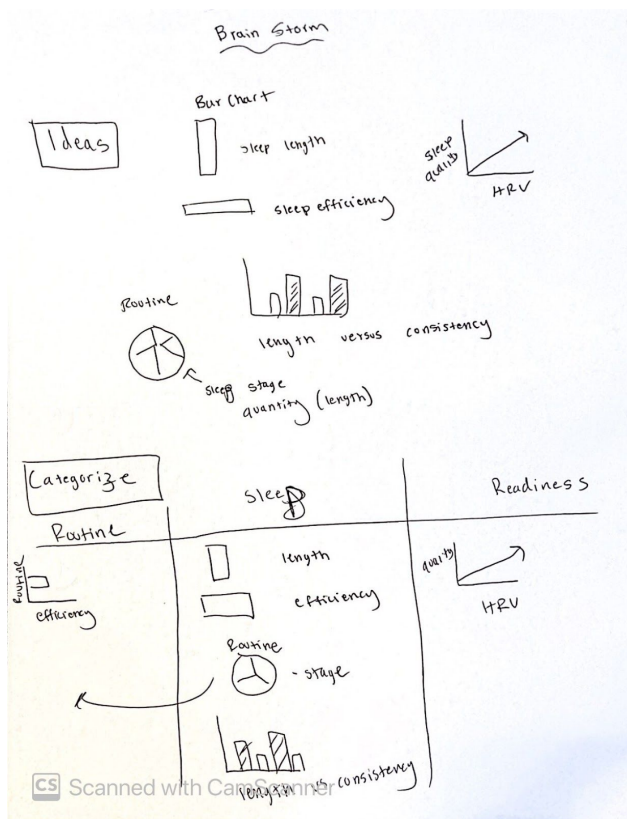 Brain Storm
Ideas
Bar Chart
sleep length
sleep efficiency
sleep quality
HRV
Routine
length versus consistency
sleep stage
quantity (length)
Categorize
Routine
Sleep
Readiness
Routine
efficiency
length
efficiency
Routine
- stage
length vs consistency
quality
HRV
CS Scanned with CamScanner